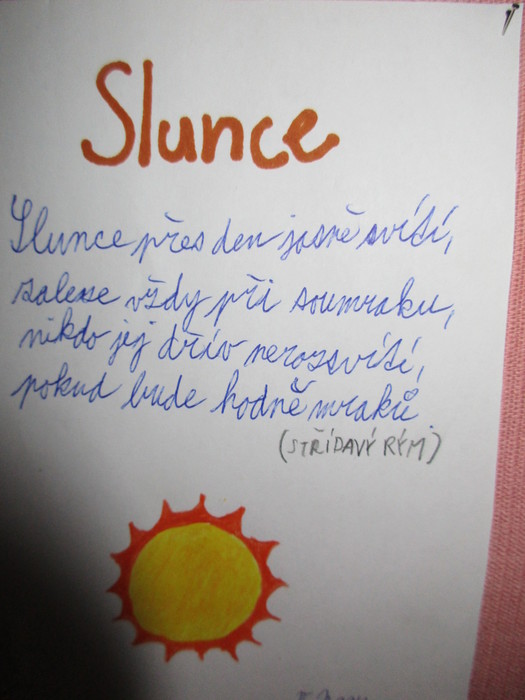 Slunce
Slunce přes den jasně svítí,
zaleze vždy při soumraku,
nikdo jej dřív nerozsvítí,
pokud bude hodně mraků.
(STŘÍDAVÝ RÝM)